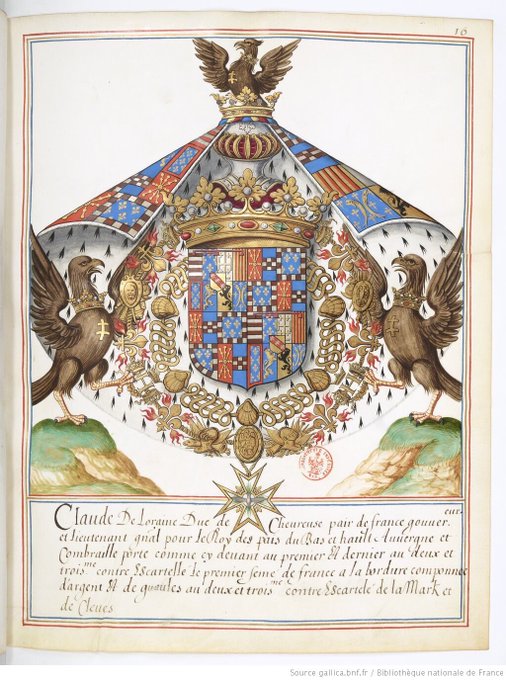 16
Claude De Loraine Duc de Cheureuse pair de france gouuer.eur
et lieutenant gnãl pour le Roy des païs du Bas et hault Auuergne et
Combraille porte comme cy deuant au premier Et dernier au deux et
trois.me contre Escartellé le premier semé de france a la bordure componneé
d'argent Et de gueulles au deux et trois.me contre Escartelé de la Mark et
de Cleues
Source gallica.bnf.fr / Bibliothèque nationale de France